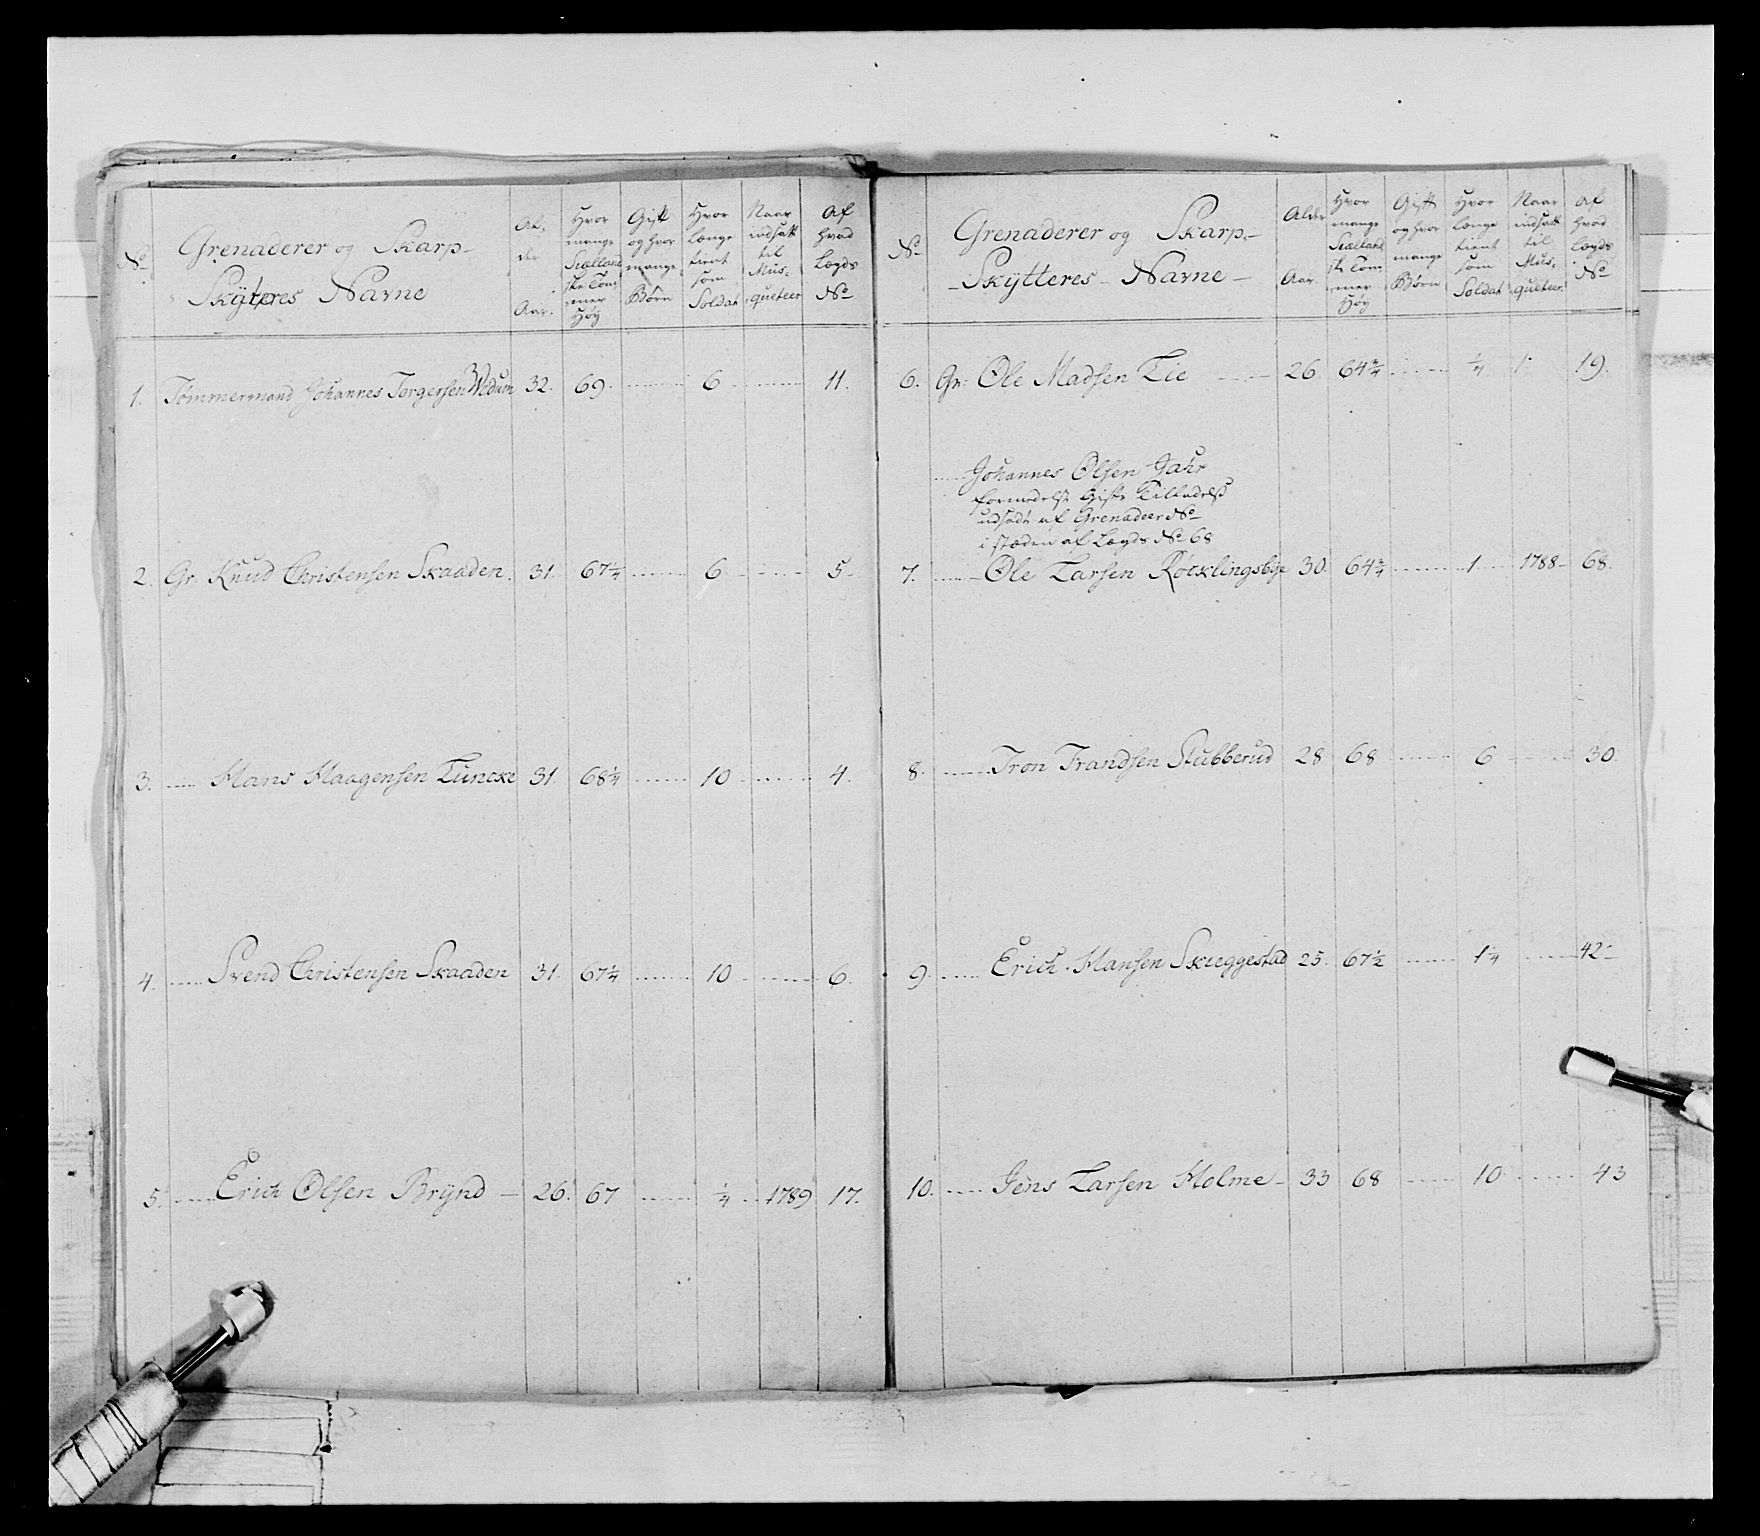 No
Grenaderer og Skarp-
Skytteres Navne
Al-
der
Aar.
Hvor
mange
Siælland
ske Tom-
mer
Høy
Gift
og hvor
mange
Børn
Hvor
længe
tient
som
Soldat
Naar
indsatt
til
Mus-
queteer
Af
hvad
Lægds
No
1. Tømmermand Johannes Torgersen Wedum 32. 69. 6 11.
2. Gr. Knud Christensen Skaaden. 31. 67¼ 6 5
3. Hans Haagensen Luncke 31. 68¼ 10 4.
4. Svend Christensen Skaaden 31. 67¼ 10 6.
5. Erich Olsen Brÿnd 26. 67 ¼ 1789 17.
No
Grenaderer og Skarp-
Skÿtteres Navne
Alder
Aar.
Hvor
mange
Siælland
ske Tom-
mer
Høy
Gift
og hvor
mange
Børn
Hvor
længe
tient
som
Soldat
Naar
indsatt
til
Mus-
queteer
Af
hvad
Lægds
No
6. Gr: Ole Madsen Lie 26 64¾ ¼ 1 19.
Johannes Olsen Jahr
formedelst Gifte Tilladelse
udsadt af Grenadeer No
i stæden af Lægds No 68
7. Ole Larsen Röcklingsbye 30. 64¾ 1 1788 68.
8. Tron Frandsen Stubberud 28 68 6 30.
9. Erich Hansen Skieggestad 25. 67½ 1¼ 42
10. Jens Larsen Holme 33 68 10 43